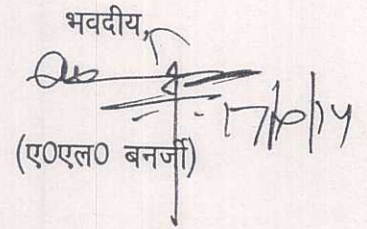 भवदीय,
17/6/14
(ए०एल० बनर्जी)